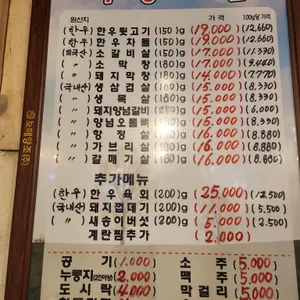 원산지 가격 100g당 가격
(한우) 한우뒷고기 (150)g (19.000) (12.660)
(한우) 한우차돌 (150)g (19.000) (12.660)
소갈비살 (150)g (17.000) (11.330)
(〃) 소막창 (180)g (17.000)
(〃) 돼지막창 (180)g (14.000) (7770)
(국내산) 생삼겹살 (150)g (15.000)
(〃) 생목살 (150)g (15.000)
(〃) 돼지양념갈비 (250)g (15.000)
(〃) 양념오돌뼈 (180)g (16.000) (8.880)
(〃) 항정살 (180)g (16.000) (8.880)
(〃) 가브리살 (180)g (16.000) (8.880)
(〃) 갈매기살 (180)g (16.000) (8.880)
추가메뉴
(한우) 한우육회 (200)g (25.000) (12.500)
(국내산) 돼지껍데기 (200)g (11.000) (5.500)
(〃) 새송이버섯 (200)g (5.000) (2.500)
계란찜추가 (2.000)
공기 (1.000) 소주 (5.000)
누룽지 2.000 맥주 (5.000)
도시락 4.000 막걸리 (5.000)